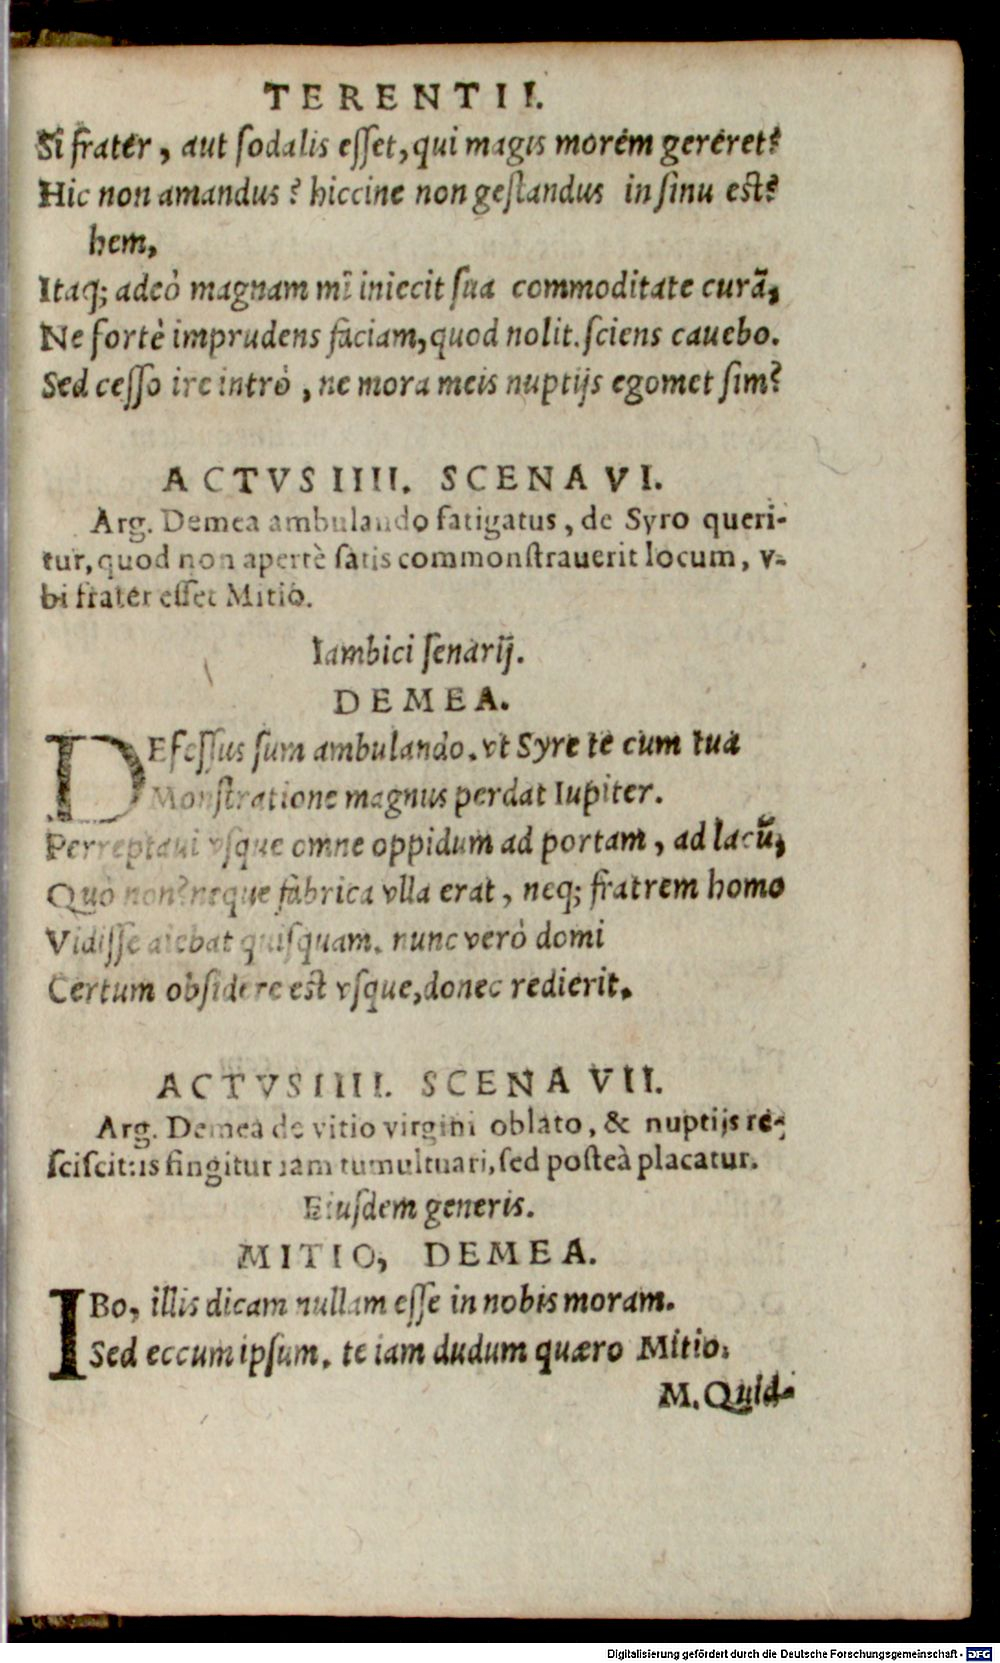 TERENTII.
Si frater, aut ſodalis eſſet, qui magis morem gereret?
Hic non amandus? hiccine non geſtandus in ſinu est?
hem,
Itaq; adeò magnam mî iniecit ſua commoditate curã,
Ne fortè imprudens faciam, quod nolit. ſciens cauebo.
Sed ceſſo ire intrò, ne mora meis nuptijs egomet ſim?
ACTVS IIII. SCENA VI.
Arg. Demea ambulando fatigatus, de Syro queri-
tur, quod non apertè ſatis commonſtrauerit locum, v-
bi frater eſſet Mitio.
Iambici ſenarij.
DEMEA.
DEfeſſus ſum ambulando. vt Syre te cum tua
Monſtratione magnus perdat Iupiter.
Perreptaui vſque omne oppidum ad portam, ad lacũ,
Quò non? neque fabrica vlla erat, neq; fratrem homo
Vidiſſe aiebat quiſquam. nunc verò domi
Certum obſidere est vſque, donec redierit.
ACTVS IIII. SCENA VII.
Arg. Demea de vitio virgini oblato, & nuptijs re-
ſciſcitis fingitur iam tumultuari, ſed poſteà placatur.
Eiuſdem generis.
MITIO, DEMEA.
IBo, illis dicam nullam eſſe in nobis moram.
Sed eccum ipſum. te iam dudum quæro Mitio.
M. Quid-
Digitalisierung gefördert durch die Deutsche Forschungsgemeinschaft - DFG